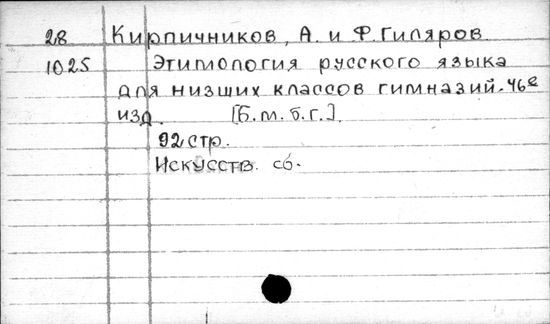 28 Кирпичников, А. и Ф. Гиляров
1025 Этимология русского языка
для низших классов гимназий. 46е
изд. [Б.м.б.г.].
92 стр.
Искусств. сб.